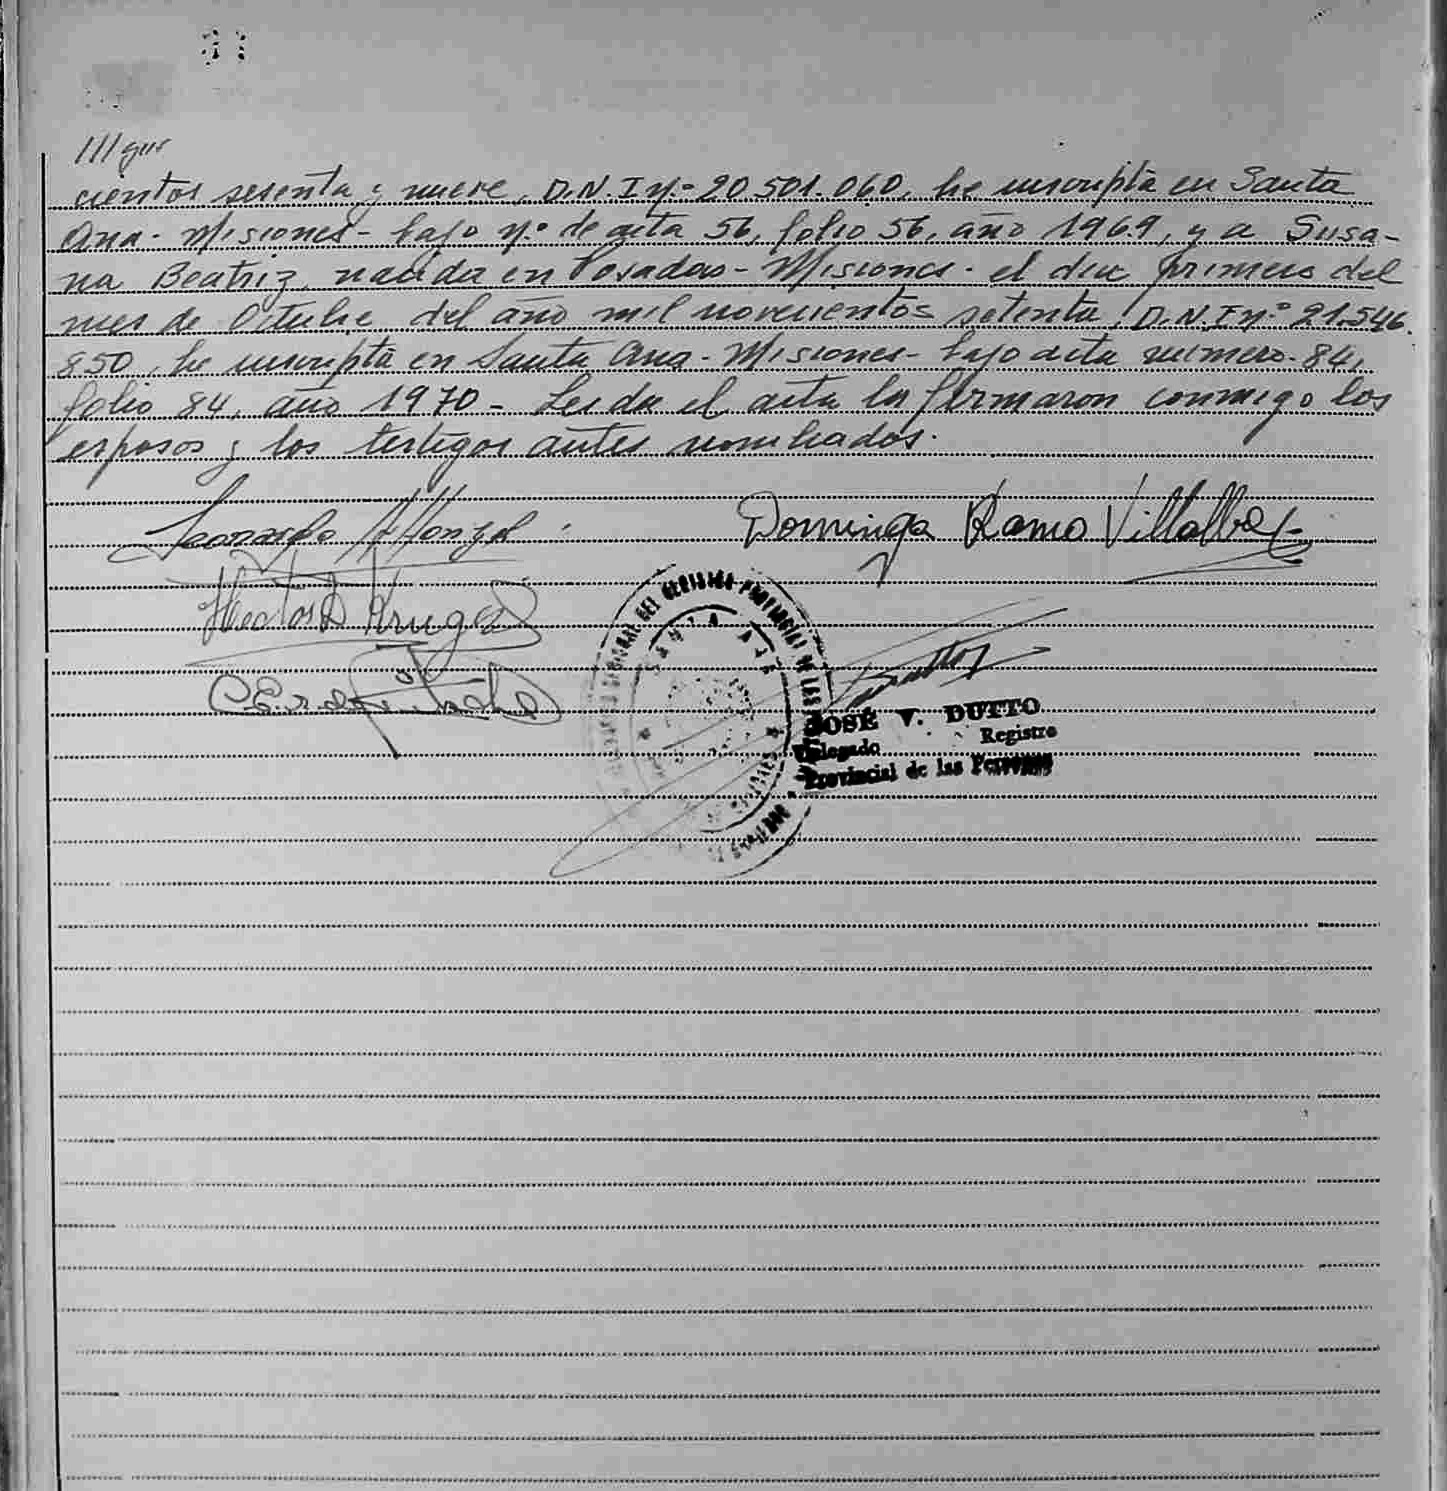 cientos sesenta y nueve, D.N.I nº 20.501.060, he inscripta en Santa
Ana - Misiones - bajo nº de acta 56, folio 56, año 1969, y a Susa-
na Beatriz, nacida en Posadas - Misiones - el dia primero del
mes de Octubre del año mil novecientos setenta, D.N.I nº 21.546.
850, he inscripta en Santa Ana - Misiones - bajo acta número 84,
folio 84, año 1970 - Leida el acta la firmaron conmigo los
esposos y los testigos antes nombrados.
Dominga Ramo Villalba
Hector Kruger
SANTA ANA
JOSÉ V. DUTTO
Delegado Registro
Provincial de las Personas